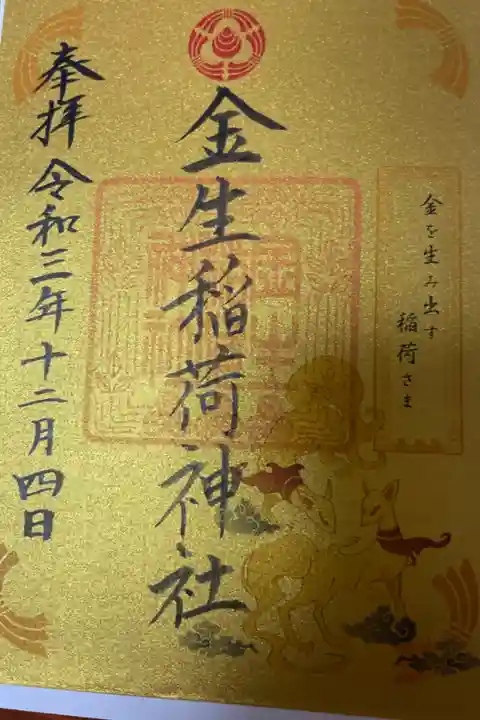 金を生み出す
稲荷さま
金生稲荷神社
奉拝 令和三年十二月四日